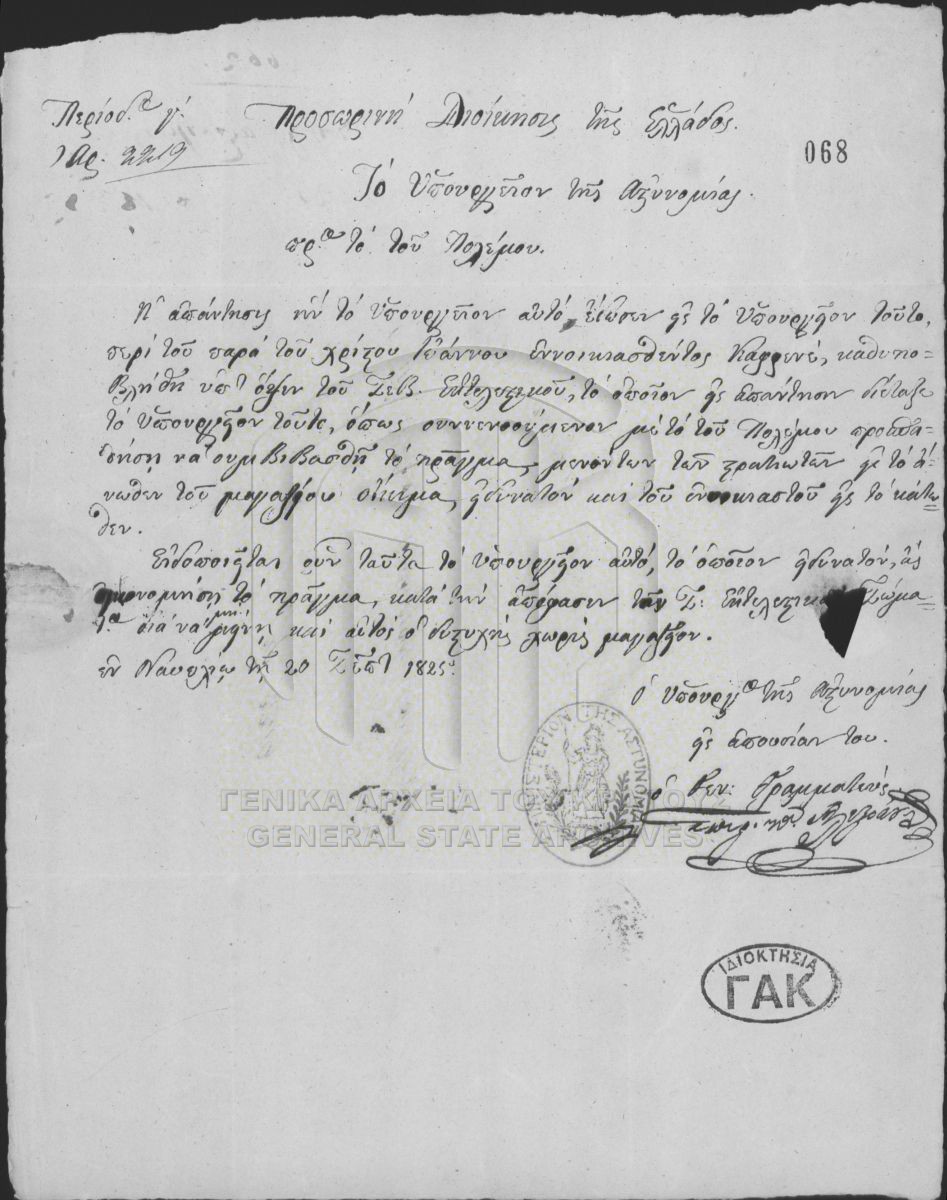 Περίοδ.ος γ΄. Προσωρινή Διοίκησις τῆς Ἑλλάδος.
Ἀρ. 2219
068
Τό Ὑπουργεῖον τῆς Ἀστυνομίας
πρός τό τοῦ Πολέμου.
Ἡ ἀπάντησις ἥν τό Ὑπουργεῖον αὐτό ἔδωσεν εἰς τό Ὑπουργεῖον τοῦτο,
περί τοῦ παρά τοῦ χρίστου Ἰωάννου ἐννοικιασθέντος καφφενέ, καθυπο-
βλήθη ὑπ' ὄψιν τοῦ Σεβ. Ἐκτελεστικοῦ, τό ὁποῖον εἰς ἀπάντησιν διέταξε
τό Ὑπουργεῖον τοῦτο, ὅπως συννενοούμενον μέ τό τοῦ Πολέμου προσπα-
θήσῃ νά συμβιβασθῇ τό πρᾶγμα, μενόντων τῶν στρατιωτῶν εἰς τό ἄ-
νωθεν τοῦ μαγαζίου οἴκημα, εἰ δυνατόν καί τοῦ ἐνοικιαστοῦ εἰς τό κάτω-
θεν.
Εἰδοποιεῖται οὖν ταῦτα τό ὑπουργεῖον αὐτό, τό ὁποῖον εἰ δυνατόν, ἄς
οἰκονομήσῃ τό πρᾶγμα, κατά τήν ἀπόφασιν τοῦ Σ: Ἐκτελεστικοῦ Σώμα-
τος διά νά μή μείνῃ καί αὐτός ὁ δυστυχής χωρίς μαγαζεῖον.
ἐν Ναυπλίῳ τῇ 20 Σεπτ 1825.
ὁ ὑπουργός τῆς Ἀστυνομίας
εἰς ἀπουσίαν του.
ὁ Γεν: Γραμματεύς
ΜΙΝΙΣΤΕΡΙΟΝ ΤΗΣ ΑΣΤΥΝΟΜΙΑΣ
ΓΕΝΙΚΑ ΑΡΧΕΙΑ ΤΟΥ ΚΡΑΤΟΥΣ
GENERAL STATE ARCHIVES
ΙΔΙΟΚΤΗΣΙΑ
ΓΑΚ